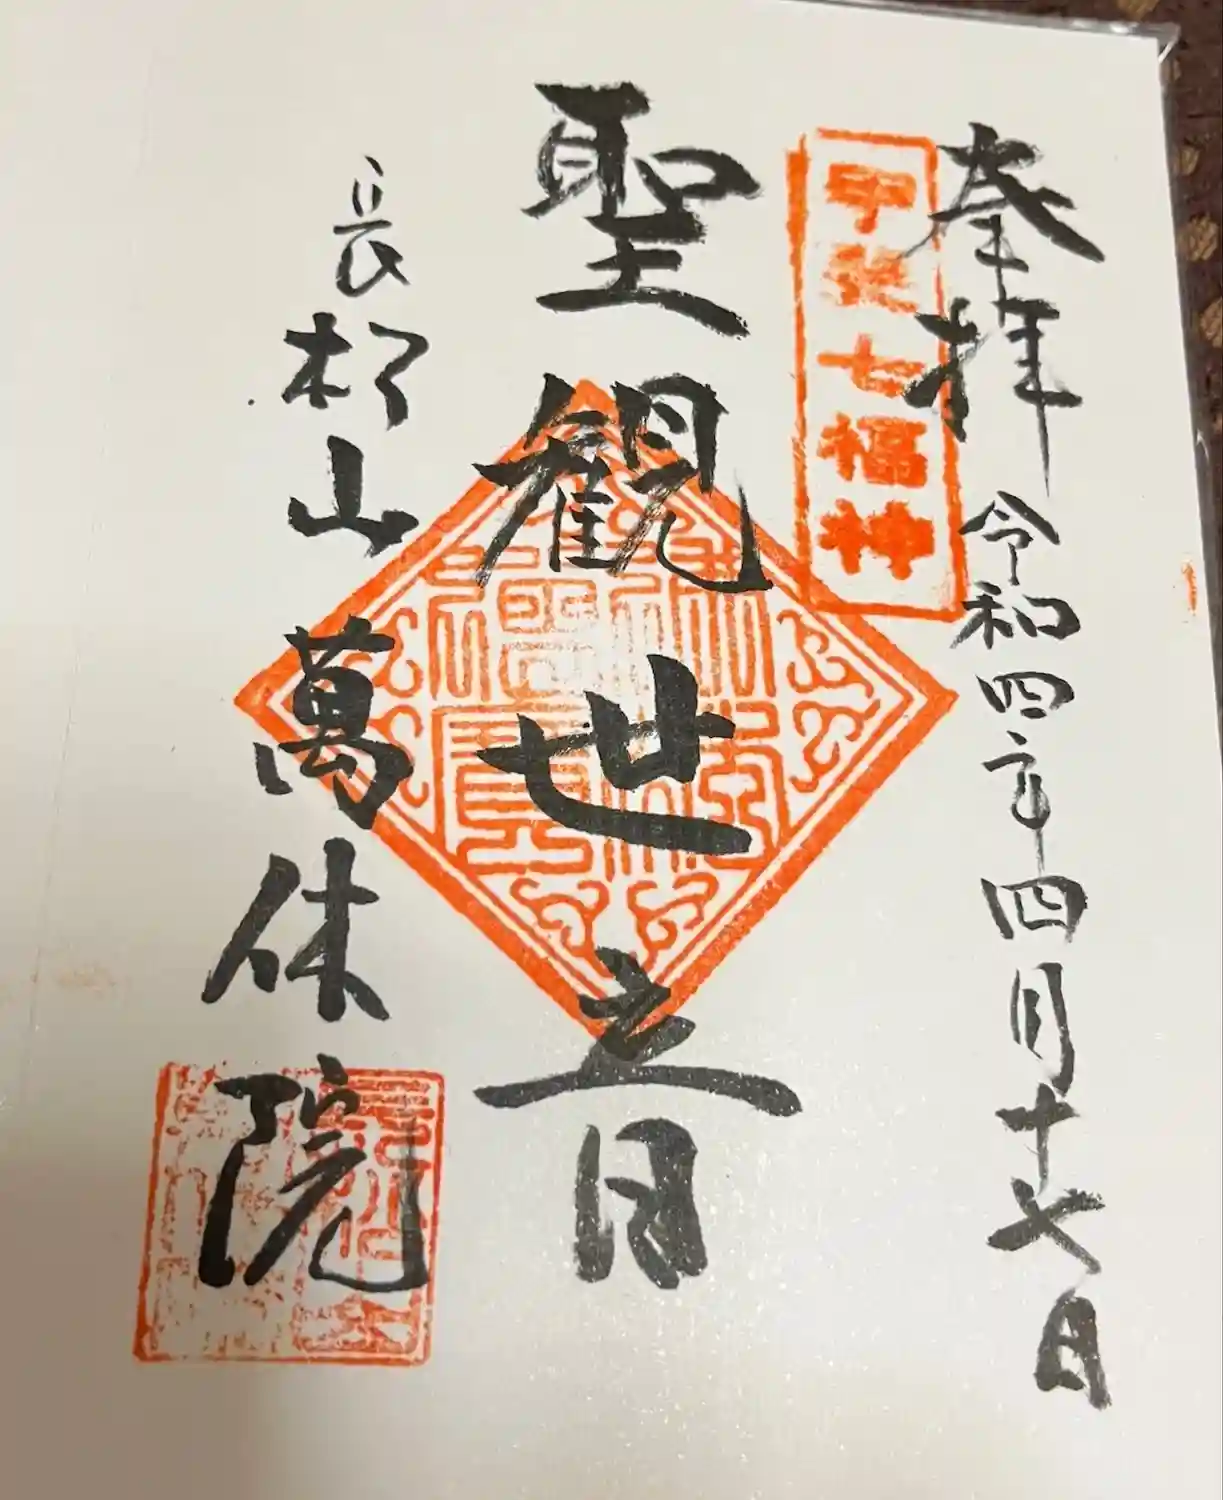 奉拝 令和四年四月十七日
甲斐七福神
聖観世音
長松山 萬休院